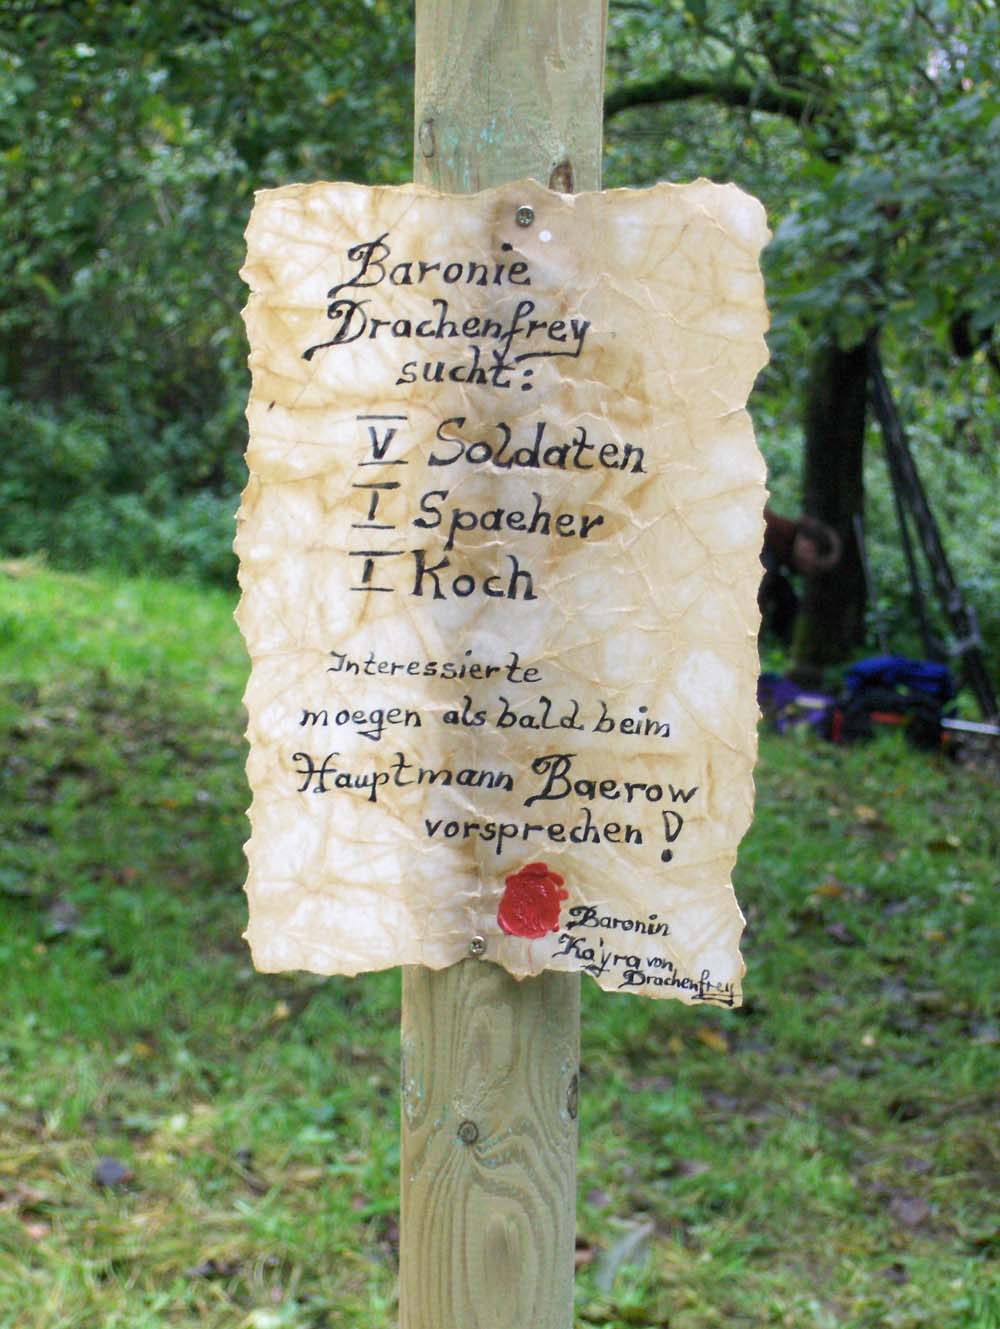 Baronie
Drachenfrey
sucht:
V Soldaten
I Spaeher
I Koch
Interessierte
moegen alsbald beim
Hauptmann Baerow
vorsprechen!
Baronin
Ka'yra von
Drachenfrey